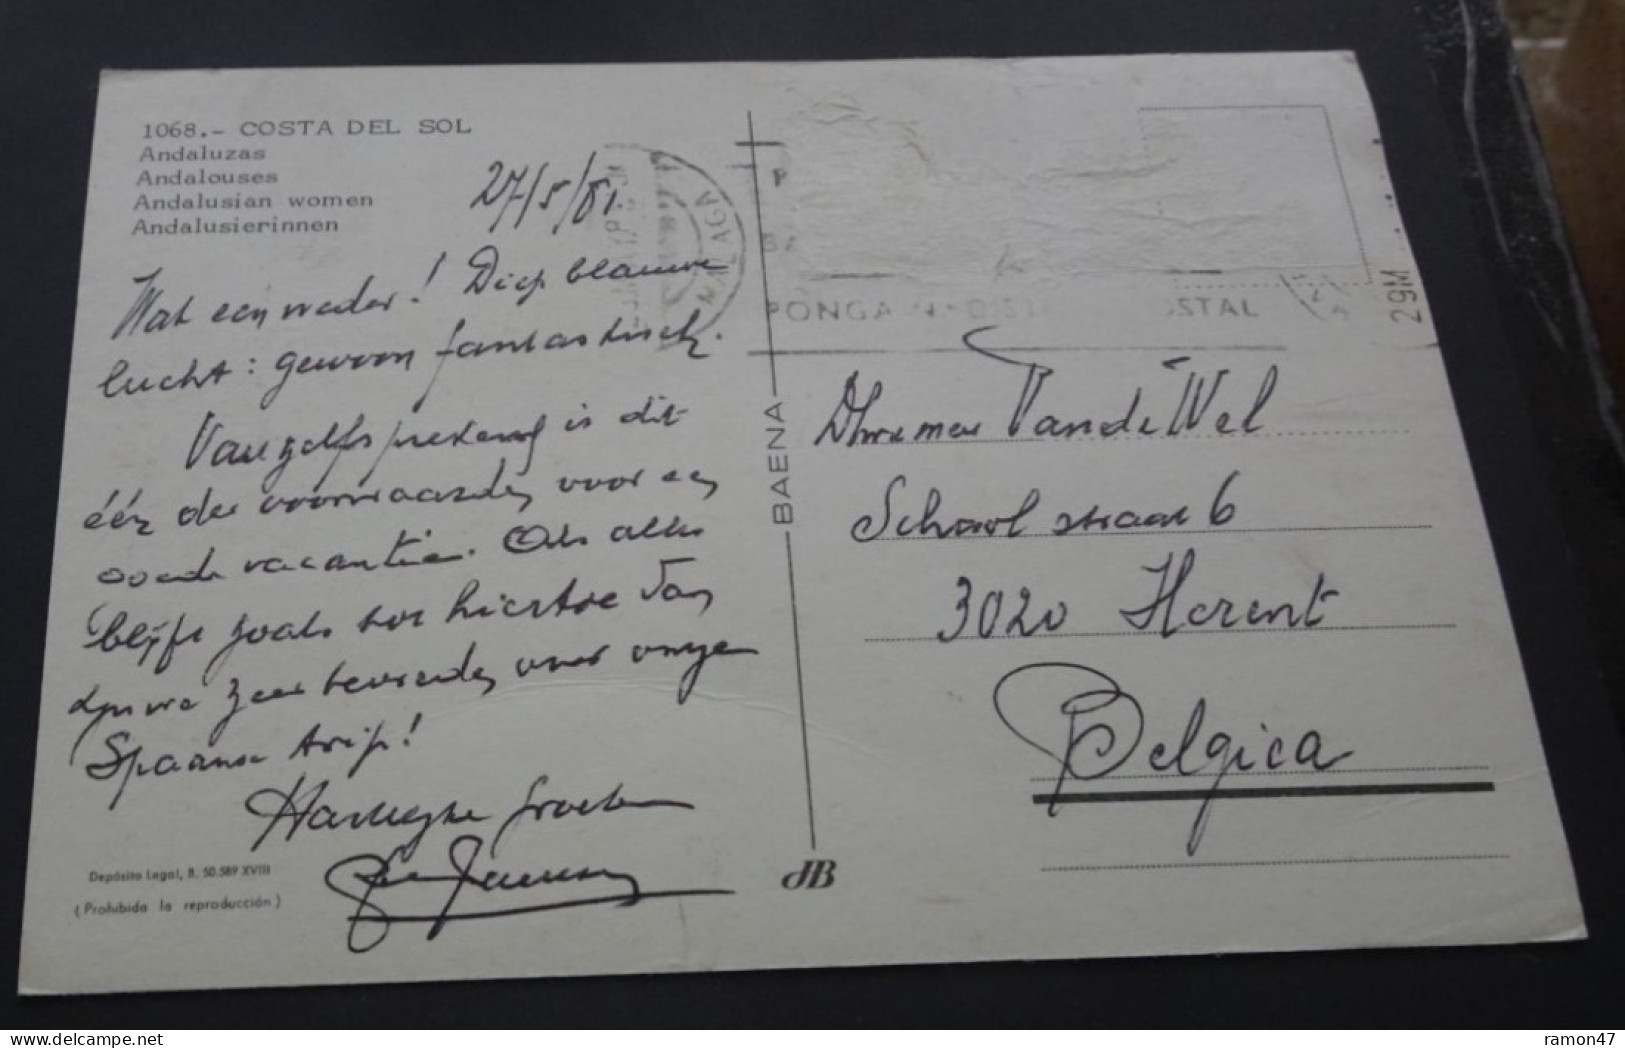 1068.- COSTA DEL SOL
Andaluzas
Andalouses
Andalusian women
Andalusierinnen
27/5/81.
MALAGA
Wat een weder! Diep blauwe
lucht: gewoon fantastisch.
Vanzelfsprekend is dit
één der voorwaarden voor een
goede vacantie. Als alles
blijft zoals tot hiertoe dan
zijn we zeer tevreden over onze
Spaanse trip!
Hartelijke groeten
Depósito Legal, B. 50.589 XVIII
(Prohibida la reproducción)
BAENA
JB
PONGA DISTRITO POSTAL
29M
Dhr. en mev. Van de Wel
Schoolstraat 6
3020 Herent
Belgica
ramon47